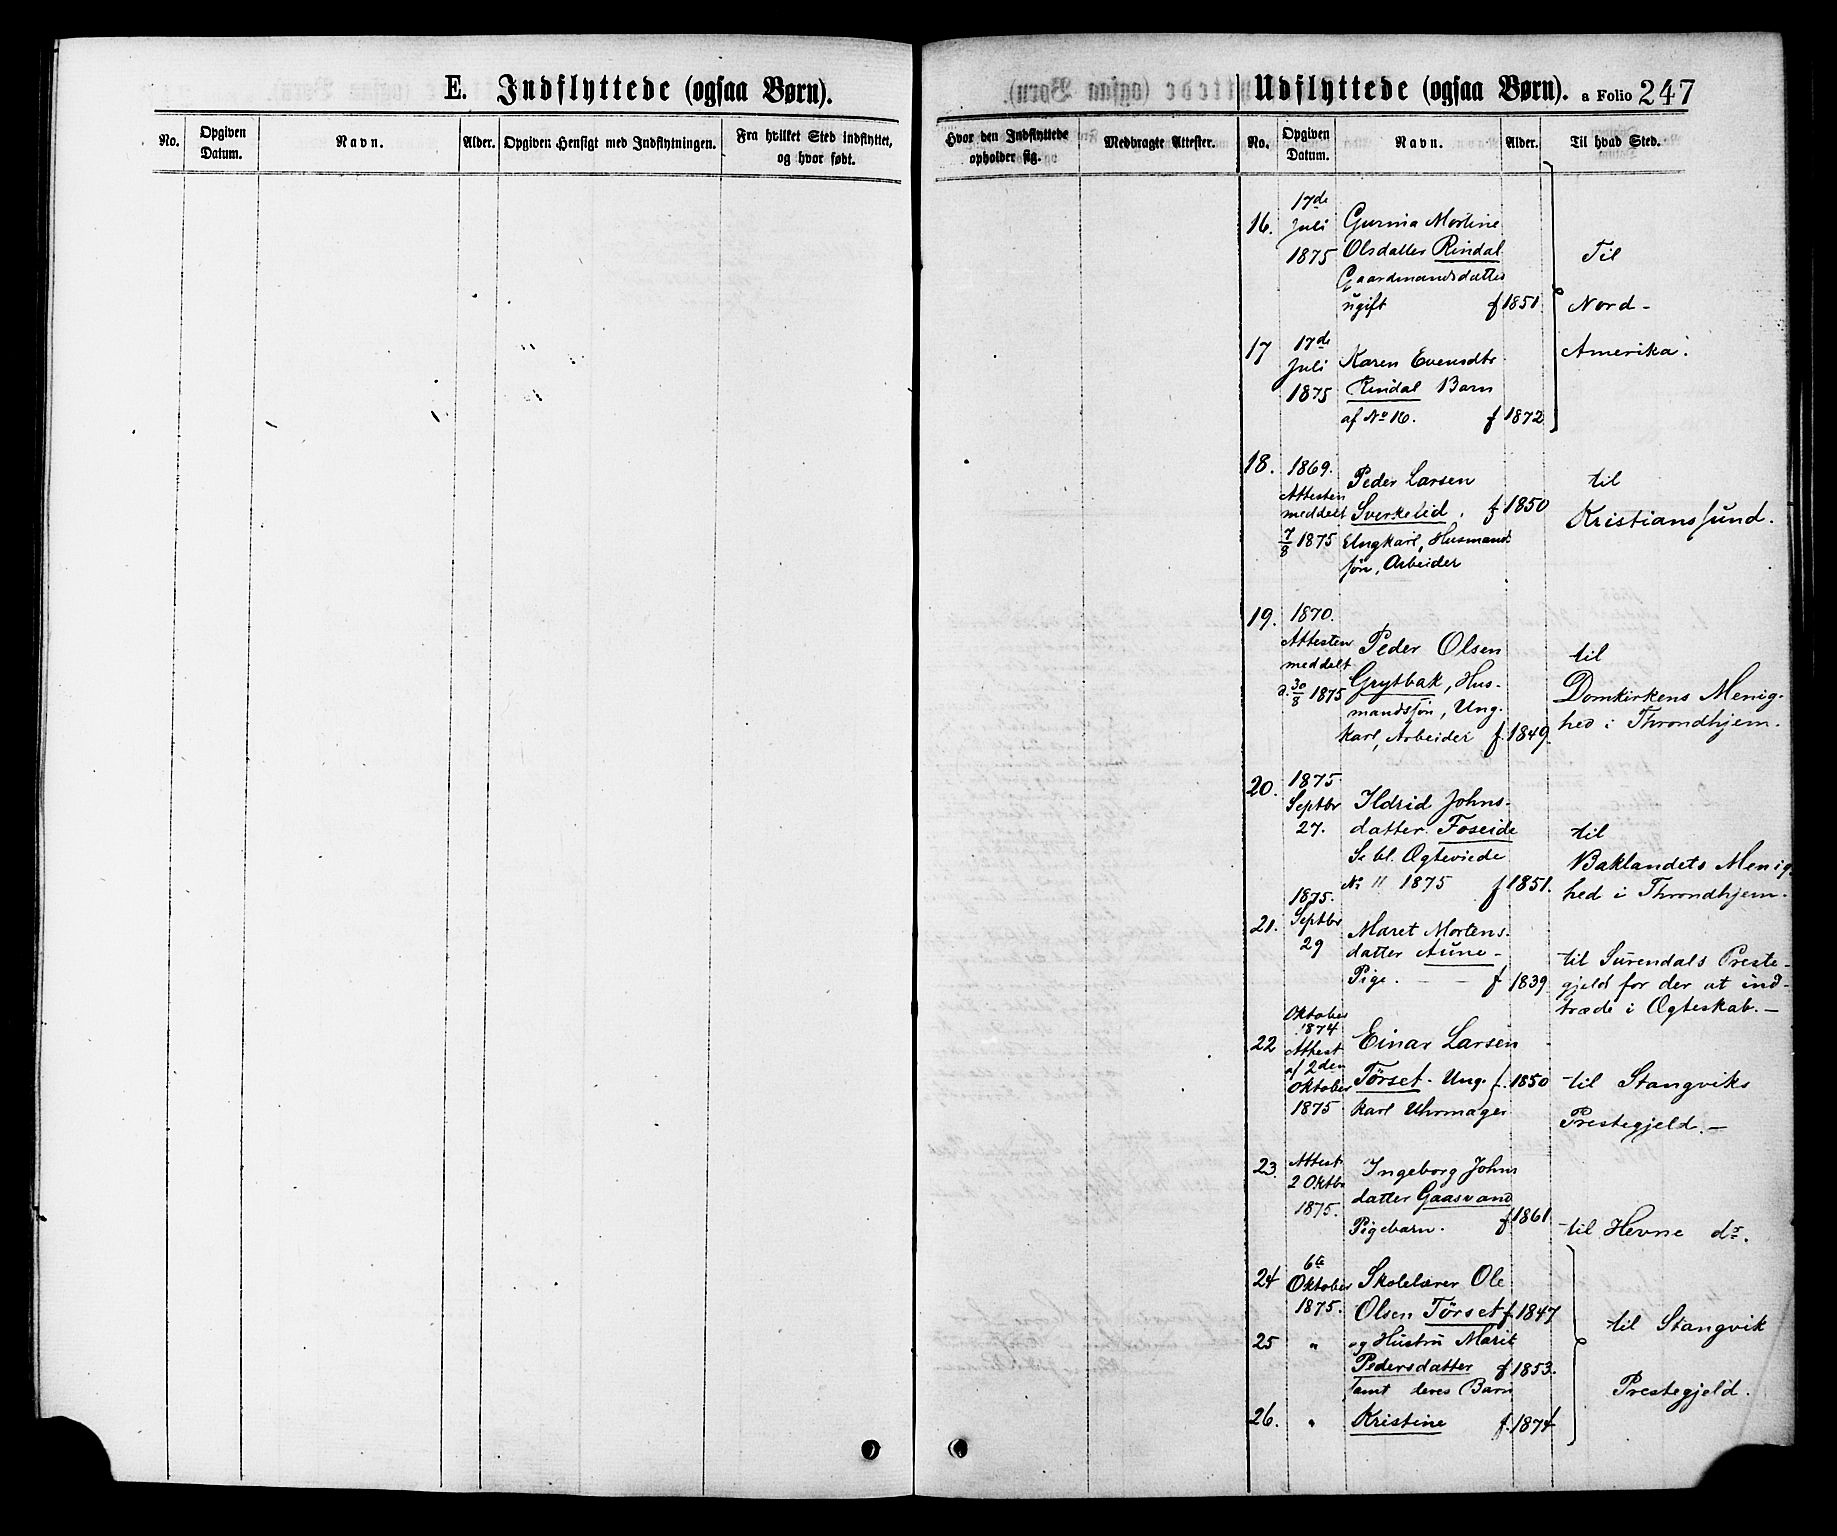 E. Indflyttede (ogsaa Børn).
No.
Opgiven Datum.
Navn.
Alder.
Opgiven Hensigt med Indflytningen.
Fra hvilket Sted indflyttet, og hvor født.
Udflyttede (ogsaa Børn).
a Folio 247
Hvor den Indflyttede opholder sig.
Medbragte Attester.
No.
Opgiven Datum.
Navn.
Alder.
Til hvad Sted.
17de
16. Juli Gurina Martine
1875 Olsdatter Rindal Til
Gaardmandsdatter
ugift f 1851. Nord-
17 17de
Juli Karen Evensdtr. Amerika.
1875 Rindal Barn
af No 16. f 1872
18. 1869. Peder Larsen til
Attesten
meddelt Sverkelid. f 1850 Kristianssund.
7/8 1875 Ungkarl, Husmands
søn, Arbeider
19. 1870.
Attesten Peder Olsen til
meddelt
d. 30/8 1875 Grytbak, Hus- Domkirkens Menig-
mandssøn, Ung- hed i Throndhjem.
karl, Arbeider f. 1849.
20. 1875
Septbr Ildrid Johns-
27. datter Foseide til
Se bl. Ægteviede Baklandets Menig
No 11 1875 f 1851. hed i Throndhjem.
1875.
21. Septbr Maret Mortens-
29 datter Aune - til Surendals Preste-
Pige. - - f 1839 gjeld for der at ind-
træde i Ægteskab. -
Oktober
1874
22 Attest Einar Larsen
af 2den
Oktober Tørset. Ung- f. 1850 til Stangviks
1875 karl Uhrmager Prestegjeld. -
23. Attest Ingeborg Johns
2 Oktbr datter Gaasvand
1875. Pigebarn. f 1861 til Hevne do.
6te
24 Oktober Skolelærer Ole
1875. Olsen Tørset f 1847 til Stangvik
25 " og Hustru Marit
Pedersdatter f 1853.
samt deres Barn Prestegjeld.
26. " Kristine f. 1874